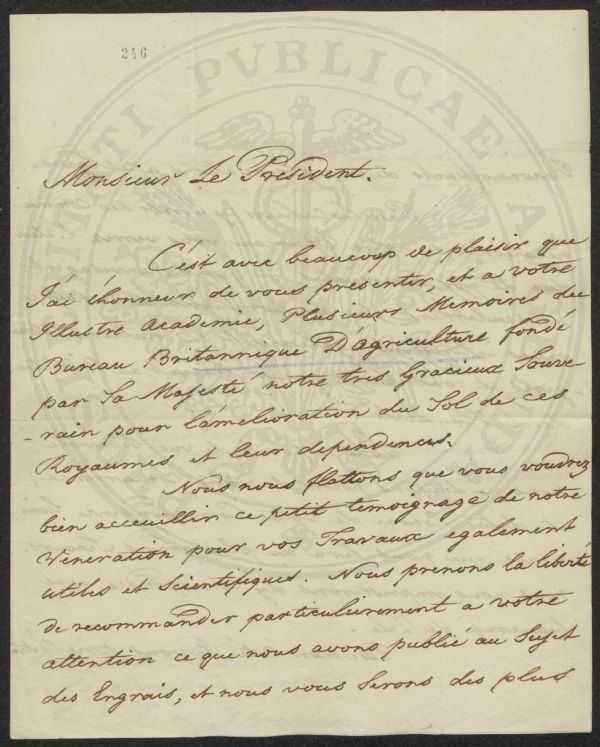 246
Monsieur Le Président.
C'est avec beaucoup de plaisir que
J'ai l'honneur de vous presenter, et a votre
Illustre Academie, Plusieurs Memoires du
Bureau Britannique D'agriculture fondé
par Sa Majesté notre tres Gracieux Souve-
-rain pour l'amelioration du Sol de ces
Royaumes et leur dependences.
Nous nous flattons que vous voudrez
bien acceuillir ce petit temoignage de notre
Veneration pour vos Travaux egalement
utiles et Scientifiques. Nous prenons la liberté
de recommander particulierement a votre
attention ce que nous avons publié au Sujet
des Engrais, et nous vous Serons des plus